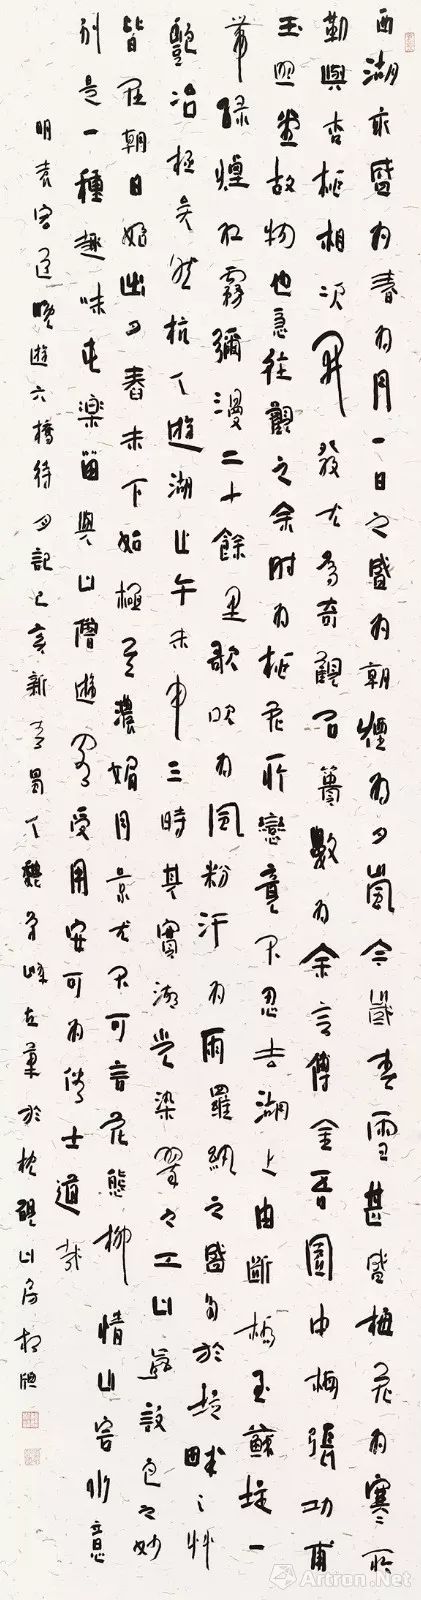 西湖最盛為春為月一日之盛為朝煙為夕嵐今歲春雪甚盛梅花為寒所
勒與杏桃相次開發尤為奇觀石簣數為余言傅金吾園中梅張功甫
玉照堂故物也急往觀之余時為桃花所戀竟不忍去湖上由斷橋至蘇堤一
帶綠煙紅霧彌漫二十餘里歌吹為風粉汗為雨羅紈之盛多於堤畔之艸
豔冶極矣然杭人遊湖止午未申三時其實湖光染翠之工山嵐設色之妙
皆在朝日始出夕舂未下始極其濃媚月景尤不可言花態柳情山容水意
別是一種趣味此樂留與山僧遊客受用安可為俗士道哉
明袁宏道晚遊六橋待月記己亥新春蜀人魏學峰左筆於枕山房
Artron.Net